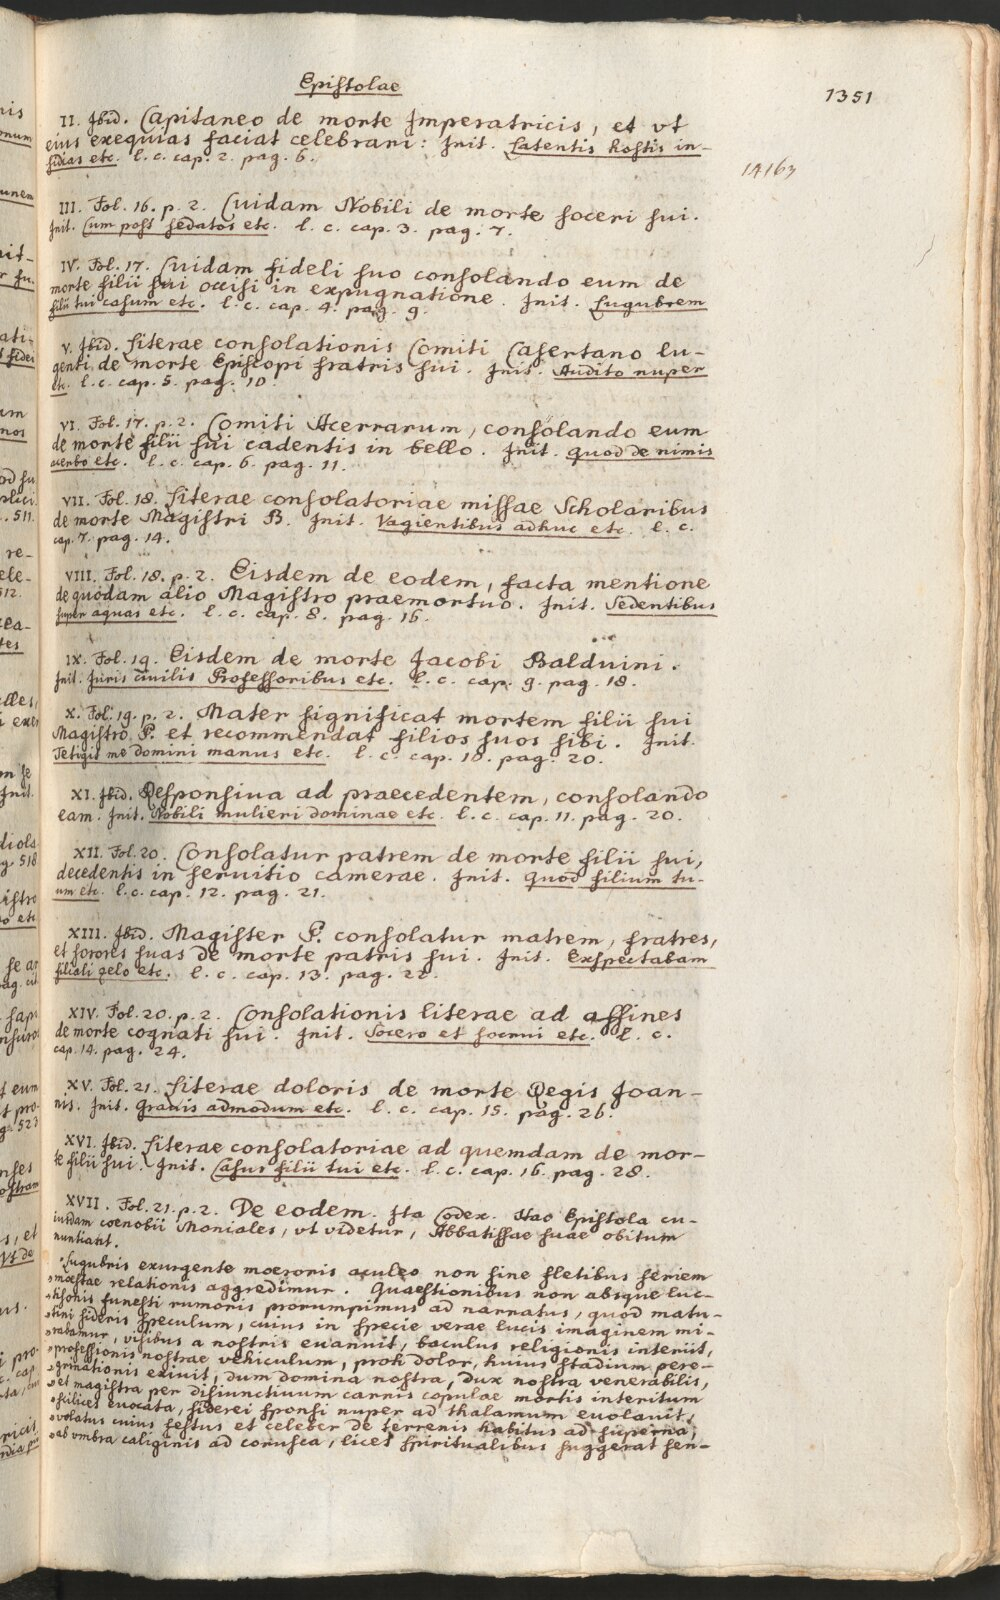 Epistolae
1351
II. Ibid. Capitaneo de morte Imperatricis, et vt
eius exequias faciat celebrari: Init. Latentis hostis in-
sidias etc. l. c. cap. 2. pag. 6.
14163
III. Fol. 16. p. 2. Cuidam Nobili de morte soceri sui.
Init. Cum post sedatos etc. l. c. cap. 3. pag. 7.
IV. Fol. 17. Cuidam fideli suo consolando eum de
morte filii sui occisi in expugnatione. Init. Lugubrem
filii tui casum etc. l. c. cap. 4. pag. 9.
V. Ibid. Literae consolationis Comiti Casertano lu-
genti de morte Episcopi fratris sui. Init. Audito nuper
etc. l. c. cap. 5. pag. 10.
VI. Fol. 17. p. 2. Comiti Acerrarum, consolando eum
de morte filii sui cadentis in bello. Init. quod de nimis
acerbo etc. l. c. cap. 6. pag. 11.
VII. Fol. 18. Literae consolatoriae missae Scholaribus
de morte Magistri B. Init. Vagientibus adhuc etc. l. c.
cap. 7. pag. 14.
VIII. Fol. 18. p. 2. Eisdem de eodem, facta mentione
de quodam alio Magistro praemortuo. Init. Sedentibus
super aquas etc. l. c. cap. 8. pag. 16.
IX. Fol. 19. Eisdem de morte Jacobi Balduini.
Init. Juris civilis Professoribus etc. l. c. cap. 9. pag. 18.
X. Fol. 19. p. 2. Mater significat mortem filii sui
Magistro P. et recommendat filios suos sibi. Init.
Tetigit me domini manus etc. l. c. cap. 10. pag. 20.
XI. Ibid. Responsiua ad praecedentem, consolando
eam. Init. Nobili mulieri dominae etc. l. c. cap. 11. pag. 20.
XII. Fol. 20. Consolatur patrem de morte filii sui,
decedentis in seruitio camerae. Init. quod filium tu-
um etc. l. c. cap. 12. pag. 21.
XIII. Ibid. Magister P. consolatur matrem, fratres,
et sorores suas de morte patris sui. Init. Exspectabam
filiali zelo etc. l. c. cap. 13. pag. 22.
XIV. Fol. 20. p. 2. Consolationis literae ad affines
de morte cognati sui. Init. Socero et socrui etc. l. c.
cap. 14. pag. 24.
XV. Fol. 21. Literae doloris de morte Regis Joan-
nis. Init. Grauis admodum etc. l. c. cap. 15. pag. 26.
XVI. Ibid. Literae consolatoriae ad quemdam de mor-
te filii sui. Init. Casus filii tui etc. l. c. cap. 16. pag. 28.
XVII. Fol. 21. p. 2. De eodem. Ita Codex. Hac Epistola cu-
iusdam coenobii Moniales, vt videtur, Abbatissae suae obitum
nuntiant.
"Lugubris exurgente moeroris aculeo non sine fletibus seriem
"moestae relationis aggredimur. Quaestionibus non absque luc-
"tisonis funesti rumoris prorumpimus ad narratus, quod matu-
"tini sideris speculum, cuius in specie verae lucis imaginem mi-
"rabamur, visibus a nostris euanuit, baculus religionis interiit,
"professionis nostrae vehiculum, proh dolor, huius stadium pere-
"grinationis exiuit, dum domina nostra, dux nostra venerabilis,
"et magistra per disiunctiuum carnis copulae mortis interitum
"scilicet euocata, siderei sponsi nuper ad thalamum euolauit,
"volatus cuius festus et celeber de terrenis habitus ad superna,
"ab vmbra caliginis ad corusca, licet spiritualibus suggerat sen-